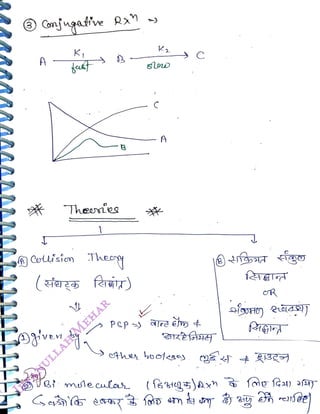 ③ Conjugative Rxⁿ →
A —K₁ fast→ B —K₂ slow→ C
C
A
B
** Theories **
Ⓐ Collision Theory
(संघट्ट सिद्धांत)
Ⓑ सक्रियित संकुल
सिद्धान्त
OR
संक्रमण अवस्था
सिद्धान्त
① given by
PCP →
other books
② Bi molecular (द्विअणुक) Rxⁿ के लिए दिया गया
क्योंकि टक्कर के लिए कम से कम दो अणु होने चाहिए